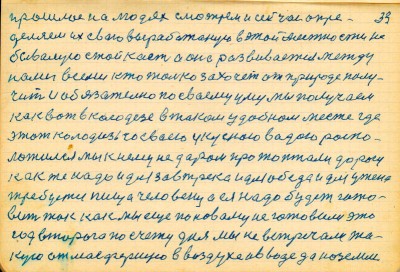 прошлое на людях смотрем и сейчас опре- 39
деляем их свою выработаную в этой местности не
бывалую стойкаст а она развиваетися между
нами всеми кто только захочет от природе полу-
чит и обязателно по своему уму мы получаем
как вот в колодезе в таком удобном месте где
этот колодизь со своею укусною вадою роспо-
ложился мы к нему не даром протоптали дорогу
как же надо идти завтрека идти обеда идти ужена
требуетси пища человеку а ея надо будет гото-
вит так как мы еще по новаму не готовели это
год второга по счету дня мы не встречали та-
кую атмасферную в воздухе а в воде да по земле